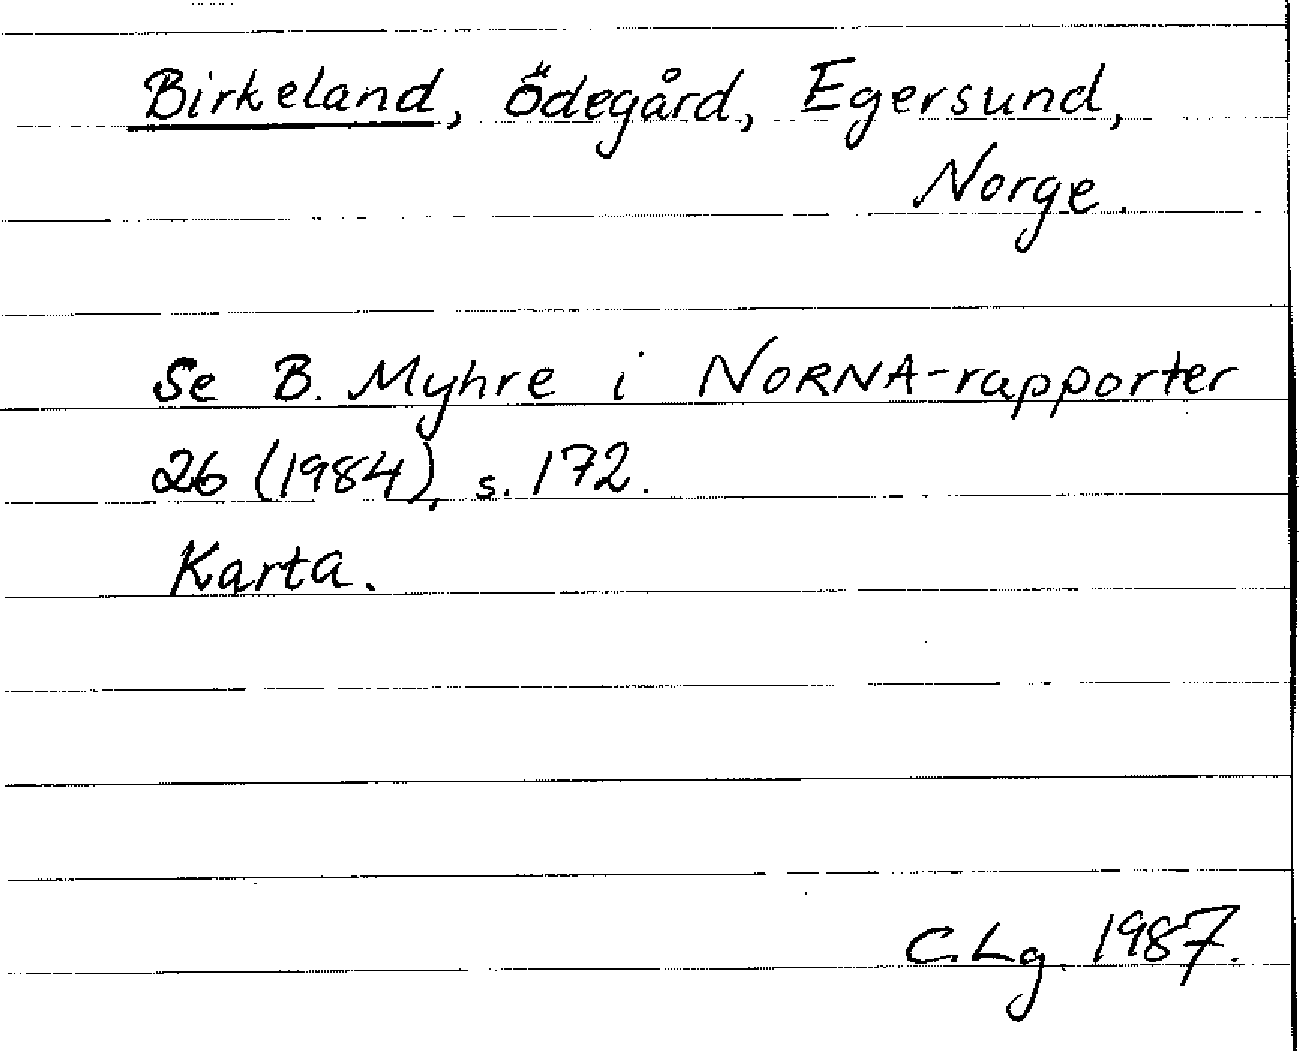 Birkeland, Ödegård, Egersund,
Norge.
Se B. Myhre i NORNA-rapporter
26 (1984), s. 172.
Karta.
C.Lg. 1987.